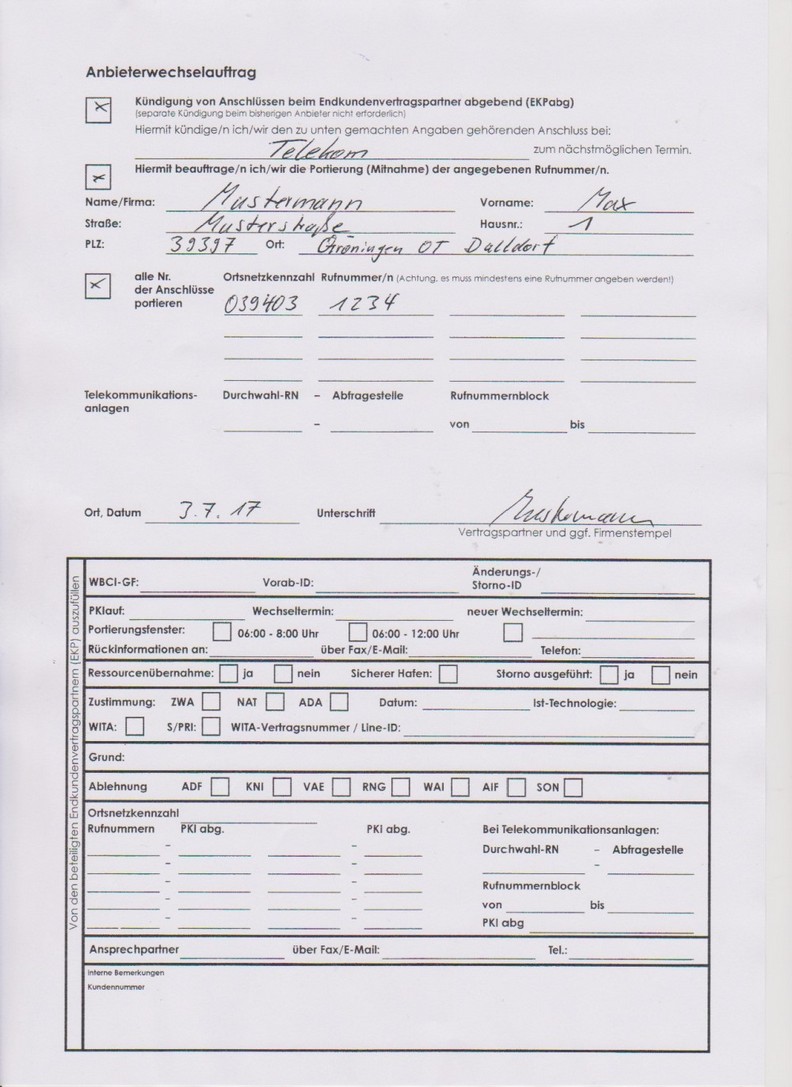 Anbieterwechselauftrag
Kündigung von Anschlüssen beim Endkundenvertragspartner abgebend (EKPabg)
(separate Kündigung beim bisherigen Anbieter nicht erforderlich)
Hiermit kündige/n ich/wir den zu unten gemachten Angaben gehörenden Anschluss bei:
Telekom zum nächstmöglichen Termin.
Hiermit beauftrage/n ich/wir die Portierung (Mitnahme) der angegebenen Rufnummer/n.
Name/Firma: Mustermann Vorname: Max
Straße: Musterstraße Hausnr.: 1
PLZ: 39397 Ort: Gröningen OT Dalldorf
alle Nr. Ortsnetzkennzahl Rufnummer/n (Achtung, es muss mindestens eine Rufnummer angeben werden!)
der Anschlüsse
portieren 039403 1234
Telekommunikations- Durchwahl-RN – Abfragestelle Rufnummernblock
anlagen
– von bis
Ort, Datum 3.7.17 Unterschrift Mustermann
Vertragspartner und ggf. Firmenstempel
Von den beteiligten Endkundenvertragspartnern (EKP) auszufüllen
Änderungs-/
WBCI-GF: Vorab-ID: Storno-ID
PKIauf: Wechseltermin: neuer Wechseltermin:
Portierungsfenster: 06:00 - 8:00 Uhr 06:00 - 12:00 Uhr
Rückinformationen an: über Fax/E-Mail: Telefon:
Ressourcenübernahme: ja nein Sicherer Hafen: Storno ausgeführt: ja nein
Zustimmung: ZWA NAT ADA Datum: Ist-Technologie:
WITA: S/PRI: WITA-Vertragsnummer / Line-ID:
Grund:
Ablehnung ADF KNI VAE RNG WAI AIF SON
Ortsnetzkennzahl
Rufnummern PKI abg. PKI abg. Bei Telekommunikationsanlagen:
– – Durchwahl-RN – Abfragestelle
– – –
– – Rufnummernblock
– – von bis
– – PKI abg
Ansprechpartner über Fax/E-Mail: Tel.:
Interne Bemerkungen
Kundennummer